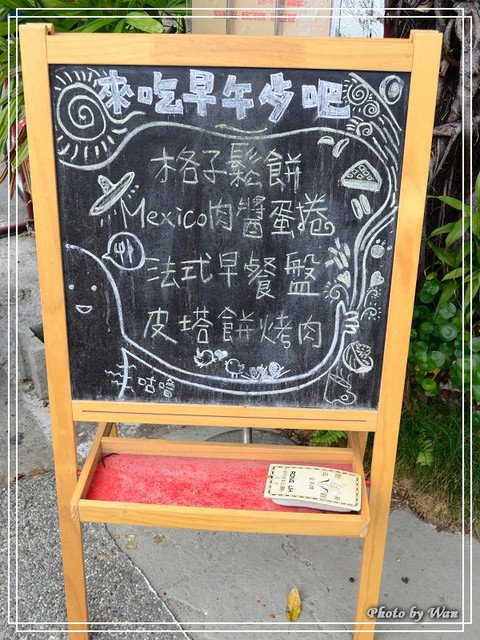 來吃早午步吧
格子鬆餅
Mexico肉醬蛋捲
法式早餐盤
皮塔餅烤肉
咕嚕
Photo by Wan